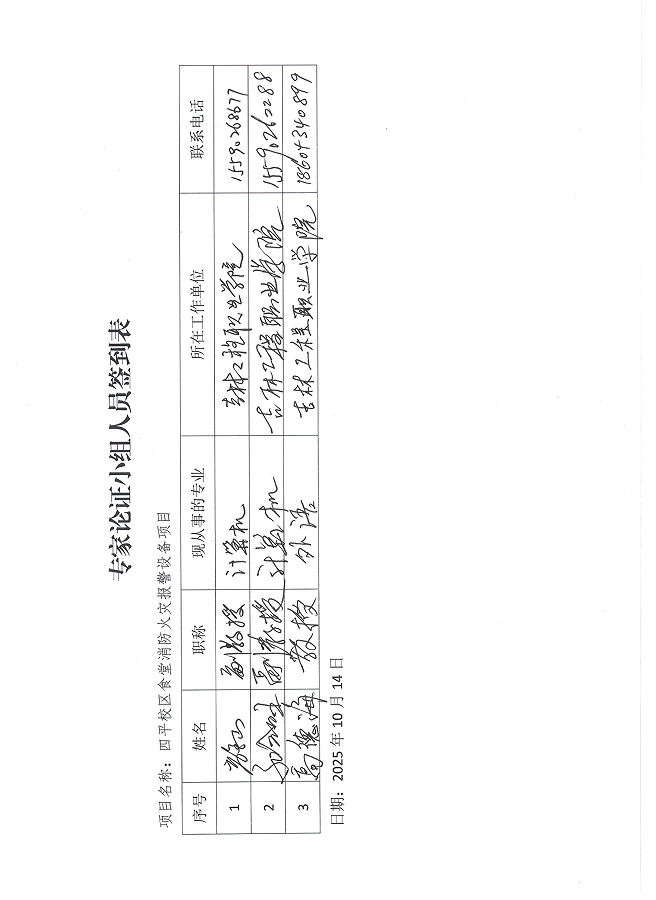 专家论证小组人员签到表
项目名称：四平校区食堂消防火灾报警设备项目
序号 姓名 职称 现从事的专业 所在工作单位 联系电话
1 副教授 计算机 吉林工程职业学院 15590268677
2 副教授 计算机 吉林工程职业学院 15590262288
3 高德海 教授 外语 吉林工程职业学院 18604340899
日期：2025 年 10 月 14 日